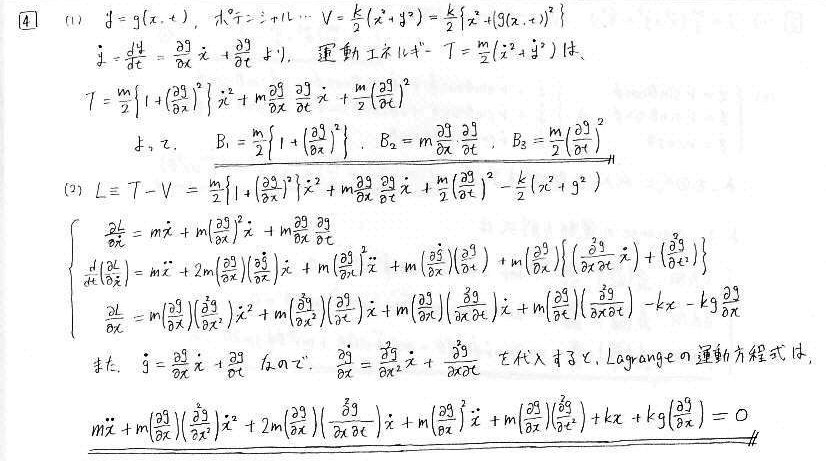 [4] (1) y = g(x, t), ポテンシャル… V = k/2 (x² + y²) = k/2 {x² + (g(x, t))²}
ẏ = dy/dt = ∂g/∂x ẋ + ∂g/∂t より, 運動エネルギー T = m/2 (ẋ² + ẏ²) は、
T = m/2 {1 + (∂g/∂x)²} ẋ² + m ∂g/∂x ∂g/∂t ẋ + m/2 (∂g/∂t)²
よって, B₁ = m/2 {1 + (∂g/∂x)²}, B₂ = m ∂g/∂x · ∂g/∂t, B₃ = m/2 (∂g/∂t)²
(2) L ≡ T − V = m/2 {1 + (∂g/∂x)²} ẋ² + m ∂g/∂x ∂g/∂t ẋ + m/2 (∂g/∂t)² − k/2 (x² + g²)
∂L/∂ẋ = mẋ + m(∂g/∂x)² ẋ + m ∂g/∂x ∂g/∂t
d/dt (∂L/∂ẋ) = mẍ + 2m(∂g/∂x)(∂ġ/∂x)ẋ + m(∂g/∂x)² ẍ + m(∂ġ/∂x)(∂g/∂t) + m(∂g/∂x){(∂²g/∂x∂t ẋ) + (∂²g/∂t²)}
∂L/∂x = m(∂g/∂x)(∂²g/∂x²)ẋ² + m(∂²g/∂x²)(∂g/∂t)ẋ + m(∂g/∂x)(∂²g/∂x∂t)ẋ + m(∂g/∂t)(∂²g/∂x∂t) − kx − kg ∂g/∂x
また, ġ = ∂g/∂x ẋ + ∂g/∂t なので, ∂ġ/∂x = ∂²g/∂x² ẋ + ∂²g/∂x∂t を代入すると、Lagrangeの運動方程式は,
mẍ + m(∂g/∂x)(∂²g/∂x²)ẋ² + 2m(∂g/∂x)(∂²g/∂x∂t)ẋ + m(∂g/∂x)² ẍ + m(∂g/∂x)(∂²g/∂t²) + kx + kg(∂g/∂x) = 0